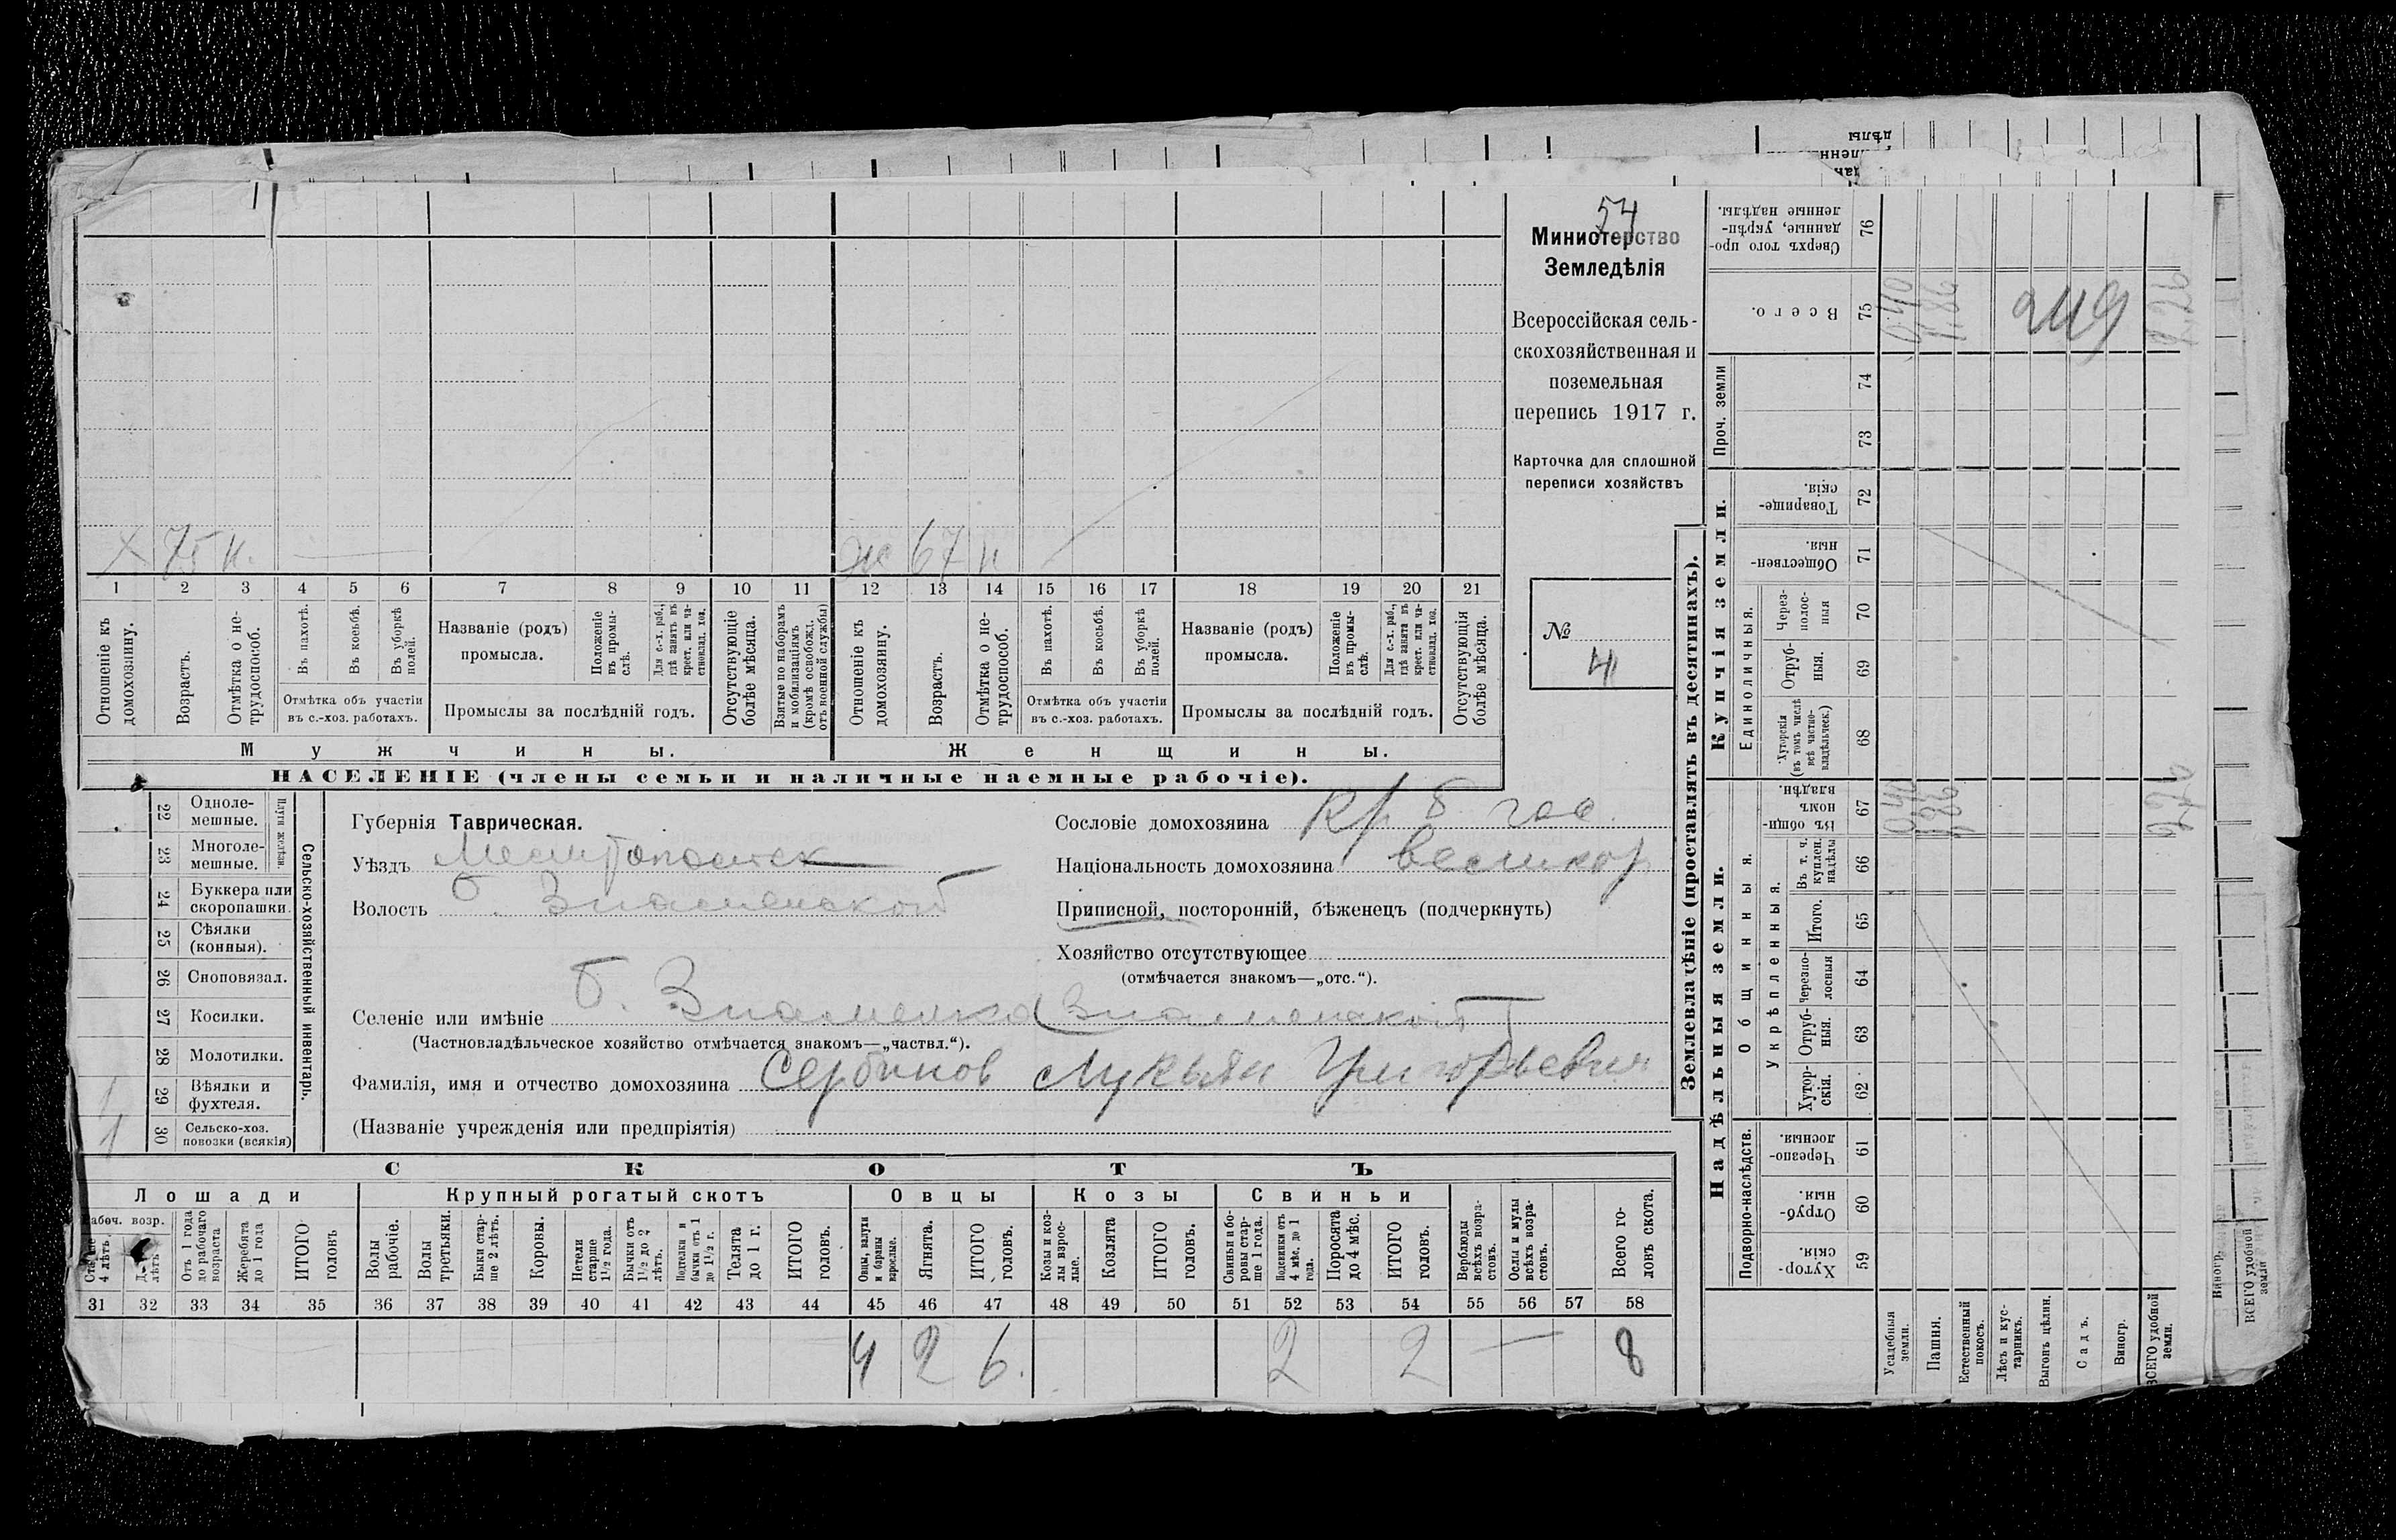 54
Министерство
Земледѣлія
Всероссійская сель-
скохозяйственная и
поземельная
перепись 1917 г.
Карточка для сплошной
переписи хозяйствъ
№
4
х 75 н.
ж 67 н
1 2 3 4 5 6 7 8 9 10 11 12 13 14 15 16 17 18 19 20 21
Отношеніе къ домохозяину.
Возрастъ.
Отмѣтка о не-трудоспособ.
Въ пахотѣ.
Въ косьбѣ.
Въ уборкѣ полей.
Отмѣтка объ участіи
въ с.-хоз. работахъ.
Названіе (родъ)
промысла.
Положеніе въ промы-слѣ.
Для с.-х. раб., гдѣ занятъ въ крест. или ча-стновлад. хоз.
Промыслы за послѣдній годъ.
Отсутствующіе болѣе мѣсяца.
Взятые по наборамъ и мобилизаціямъ (кромѣ освобожд. отъ военной службы)
Отношеніе къ домохозяину.
Возрастъ.
Отмѣтка о не-трудоспособ.
Въ пахотѣ.
Въ косьбѣ.
Въ уборкѣ полей.
Отмѣтка объ участіи
въ с.-хоз. работахъ.
Названіе (родъ)
промысла.
Положеніе въ промы-слѣ.
Для с.-х. раб., гдѣ занята въ крест. или ча-стновлад. хоз.
Промыслы за послѣдній годъ.
Отсутствующія болѣе мѣсяца.
Мужчины.
Женщины.
НАСЕЛЕНІЕ (члены семьи и наличные наемные рабочіе).
Сельско-хозяйственный инвентарь.
Плуги желѣзн.
22 Одноле-мешные.
23 Многоле-мешные.
24 Буккера или скоропашки.
25 Сѣялки (конныя).
26 Сноповязал.
27 Косилки.
28 Молотилки.
29 Вѣялки и фухтеля. 1
30 Сельско-хоз. повозки (всякія) 1
Губернія Таврическая.
Уѣздъ Мелитопольск
Волость Б. Знаменской
Сословіе домохозяина Кр
Національность домохозяина великор
Приписной, посторонній, бѣженецъ (подчеркнуть)
Хозяйство отсутствующее
(отмѣчается знакомъ—„отс.“).
Селеніе или имѣніе Б. Знаменка Знаменской
(Частновладѣльческое хозяйство отмѣчается знакомъ—„частвл.“).
Фамилія, имя и отчество домохозяина Сербинов Лукьян Григорьевич
(Названіе учрежденія или предпріятія)
СКОТЪ
Лошади
Крупный рогатый скотъ
Овцы
Козы
Свиньи
Отъ 1 года до рабочаго возраста
Жеребята до 1 года
ИТОГО головъ
Волы рабочіе.
Волы третьяки.
Быки стар-ше 2 лѣтъ.
Коровы.
Нетели старше 1½ года.
Бычки отъ 1½ до 2 лѣтъ.
Подтелки и бычки отъ 1 до 1½ г.
Телята до 1 г.
ИТОГО головъ.
Овцы, валухи и бараны взрослые.
Ягнята.
ИТОГО головъ.
Козы и коз-лы взрос-лые.
Козлята
ИТОГО головъ.
Свиньи и бо-ровы стар-ше 1 года.
Подсвинки отъ 4 мѣс. до 1 года.
Поросята до 4 мѣс.
ИТОГО головъ.
Верблюды всѣхъ возра-стовъ.
Ослы и мулы всѣхъ возра-стовъ.
Всего го-ловъ скота.
31 32 33 34 35 36 37 38 39 40 41 42 43 44 45 46 47 48 49 50 51 52 53 54 55 56 57 58
4 2 6. 2 2 — 8
Землевладѣніе (проставлять въ десятинахъ).
Надѣльныя земли.
Купчія земли.
Проч. земли
Подворно-наслѣдств.
Общинныя.
Укрѣпленныя.
Единоличныя.
Хутор-скія. 59
Отруб-ныя. 60
Черезпо-лосныя. 61
Хутор-скія. 62
Отруб-ныя. 63
Черезпо-лосныя 64
Итого. 65
Въ т. ч. куплен. надѣлы 66
Въ общи-номъ владѣн. 67
Хуторскія (въ томъ числѣ всѣ частно-владѣльческ.) 68
Отруб-ныя. 69
Через-полос-ныя 70
Обществен-ныя. 71
Товарище-скія. 72
73
74
Всего. 75
Сверхъ того про-данные, укрѣп-ленные надѣлы. 76
Усадебныя земли.
Пашня.
Естественный покосъ.
Лѣсъ и кус-тарникъ.
Выгонъ цѣлин.
Садъ.
Виногр.
ВСЕГО удобной земли.
249
Виногр.
ВСЕГО удобной земли